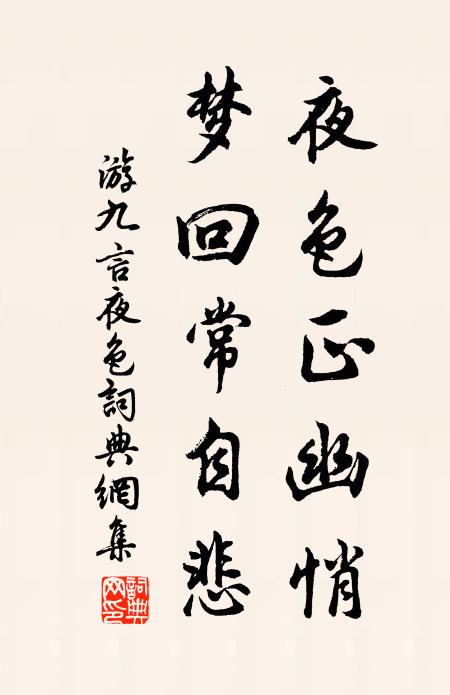 夜色正幽悄
梦回常自悲
游九言夜色詞典網集
詞典
网印